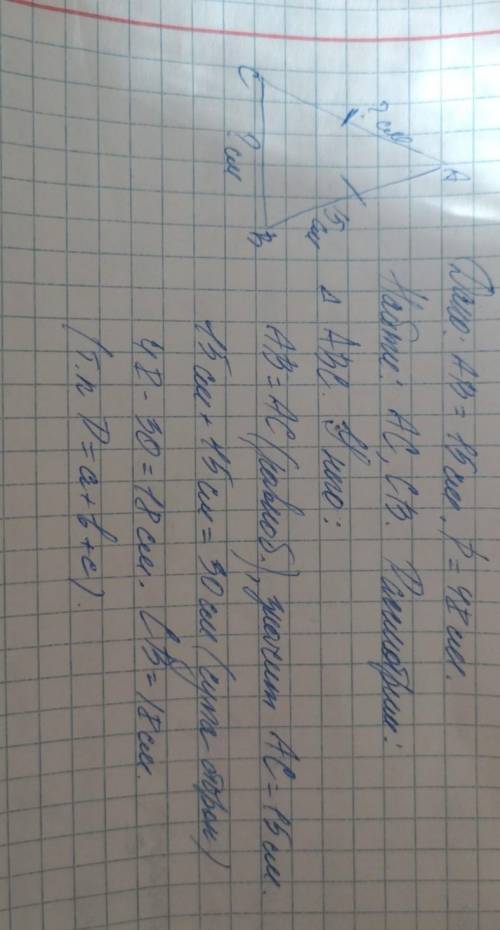 A
? см
15 см
C
? см
B
Дано: AB = 15 см. P = 48 см.
Найти: AC, CB. Рассмотрим:
△ ABC. У него:
AB = AC (равноб.), значит AC = 15 см.
15 см + 15 см = 30 см (сума сторон)
48 - 30 = 18 см. CB = 18 см.
(т.п P = a + b + c).